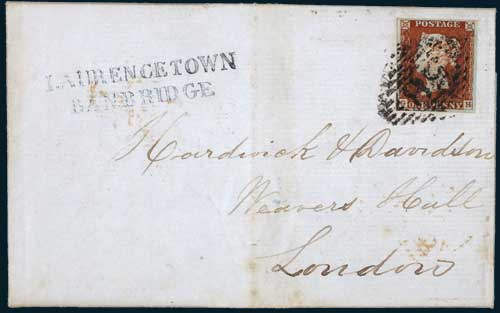 LAURENCETOWN
BANBRIDGE
POSTAGE
Hardwick & Davidson
Weavers Hall
London